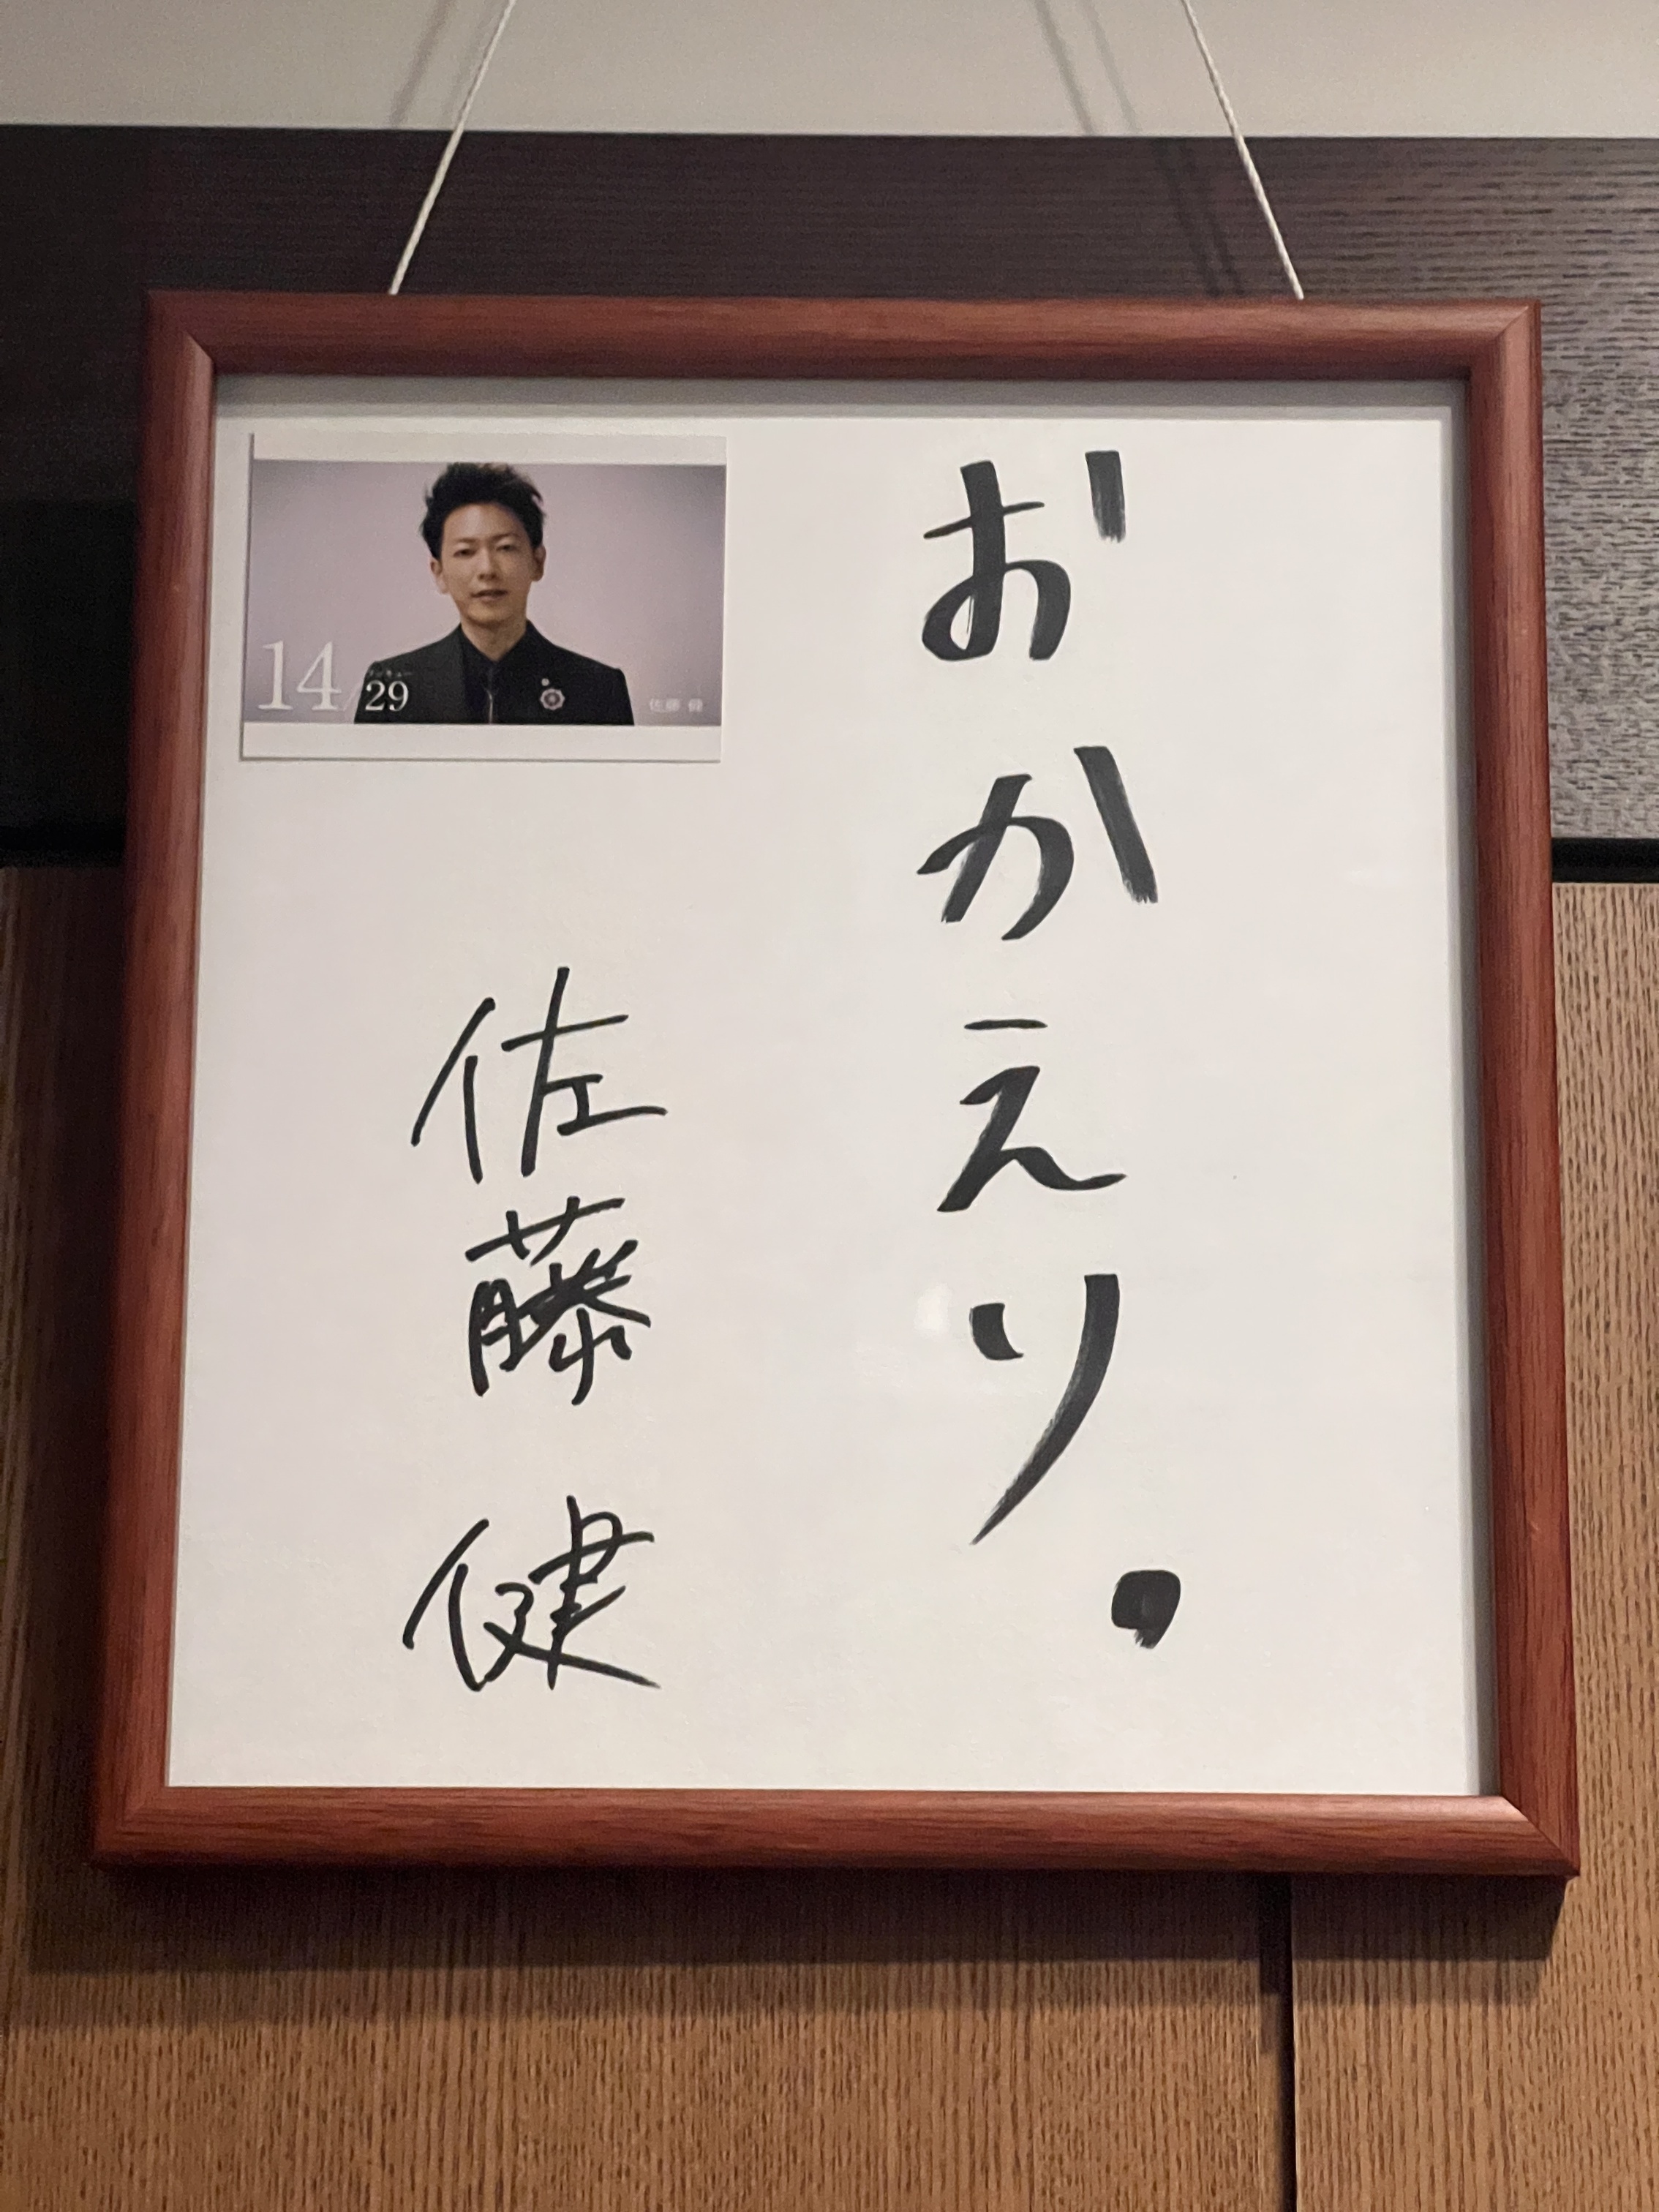 おかえり.
佐藤 健
14/29
佐藤 健